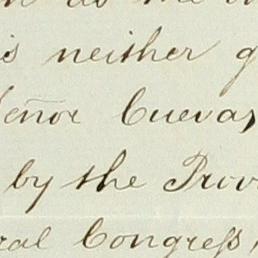 is neither g
Señor Cuevas,
by the Prov
ral Congress,